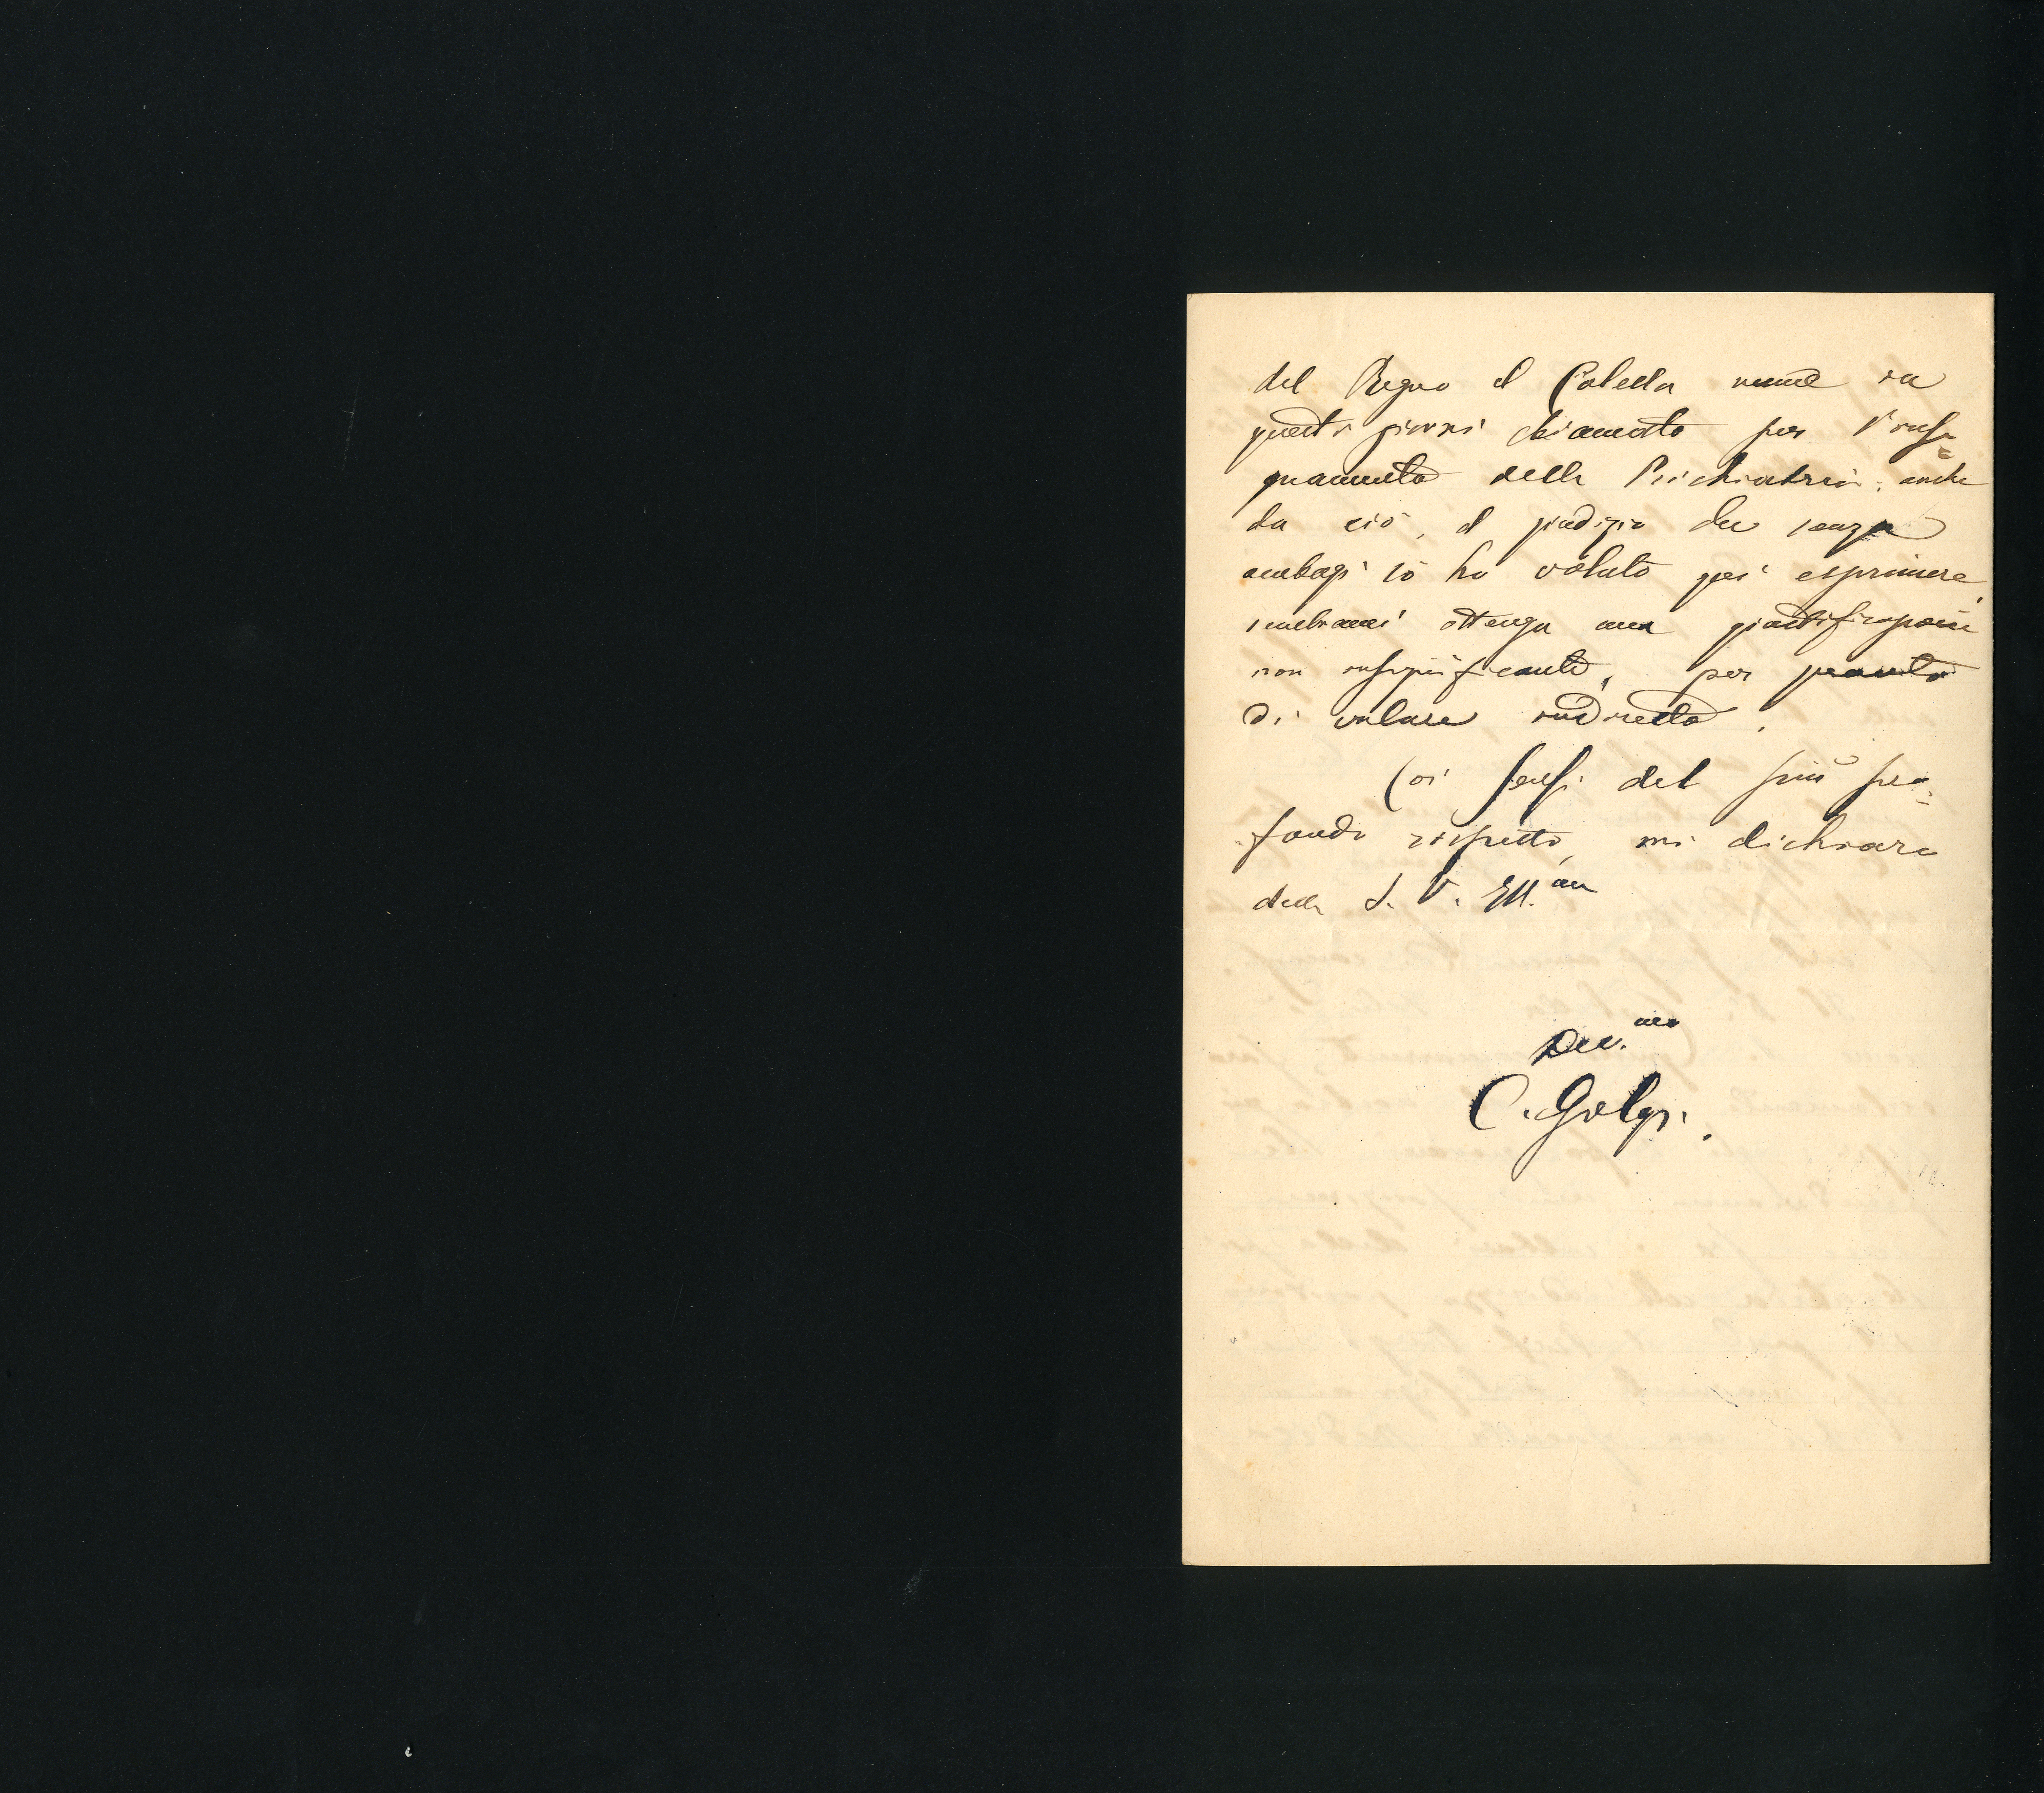 del Regno il Colella venne in
questi giorni chiamato per l'inse=
gnamento della Psichiatria: anche
da ciò, il giudizio che senza
ambagi io ho voluto qui esprimere,
sembrami ottenga una giustificazione
non insignificante, per quanto
di valore indiretto.
Coi sensi del più pro=
fondo rispetto, mi dichiaro
della S. V. Ill.ma
Dev.mo
C. Golgi.